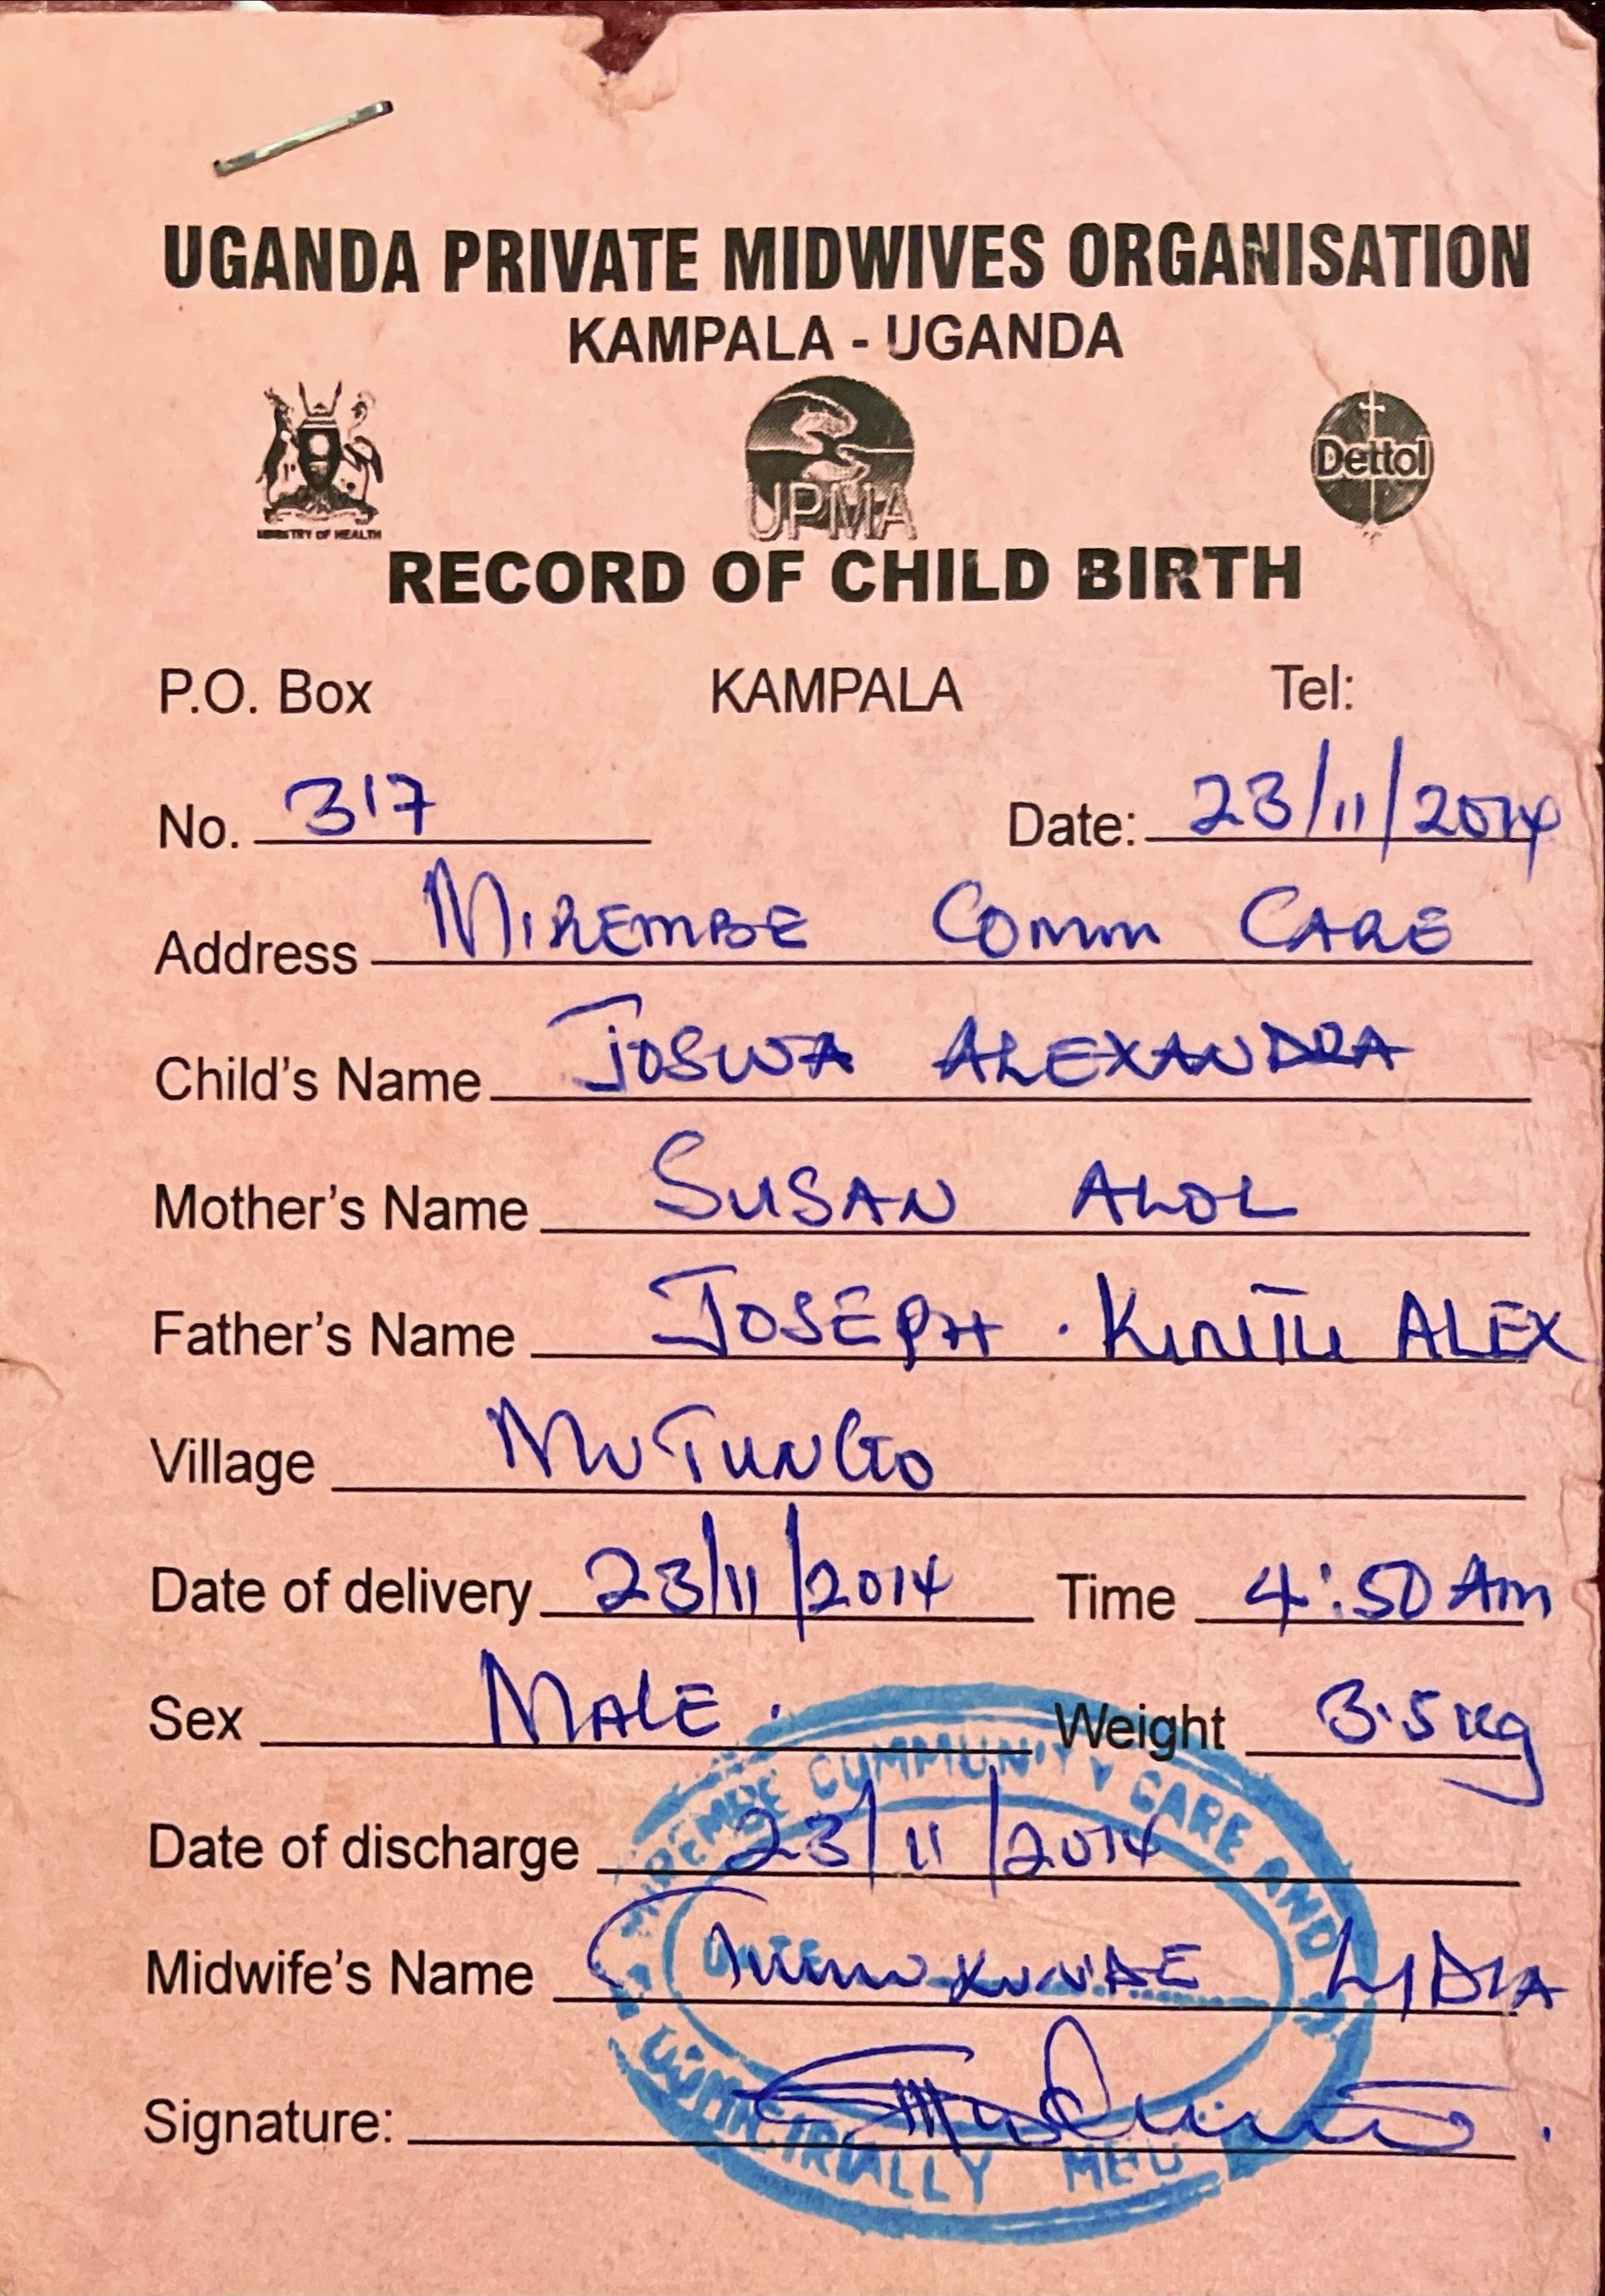 UGANDA PRIVATE MIDWIVES ORGANISATION
KAMPALA - UGANDA
MINISTRY OF HEALTH
UPMA
Dettol
RECORD OF CHILD BIRTH
P.O. Box KAMPALA Tel:
No. 317 Date: 23/11/2014
Address MIREMBE COMM CARE
Child's Name JOSWA ALEXANDRA
Mother's Name SUSAN ALOL
Father's Name JOSEPH . KINITU ALEX
Village MUTUNGO
Date of delivery 23/11/2014 Time 4:50 Am
Sex MALE. Weight 3.5kg
Date of discharge 23/11/2014
Midwife's Name LYDIA
Signature:
COMMUNITY CARE AND
DATE